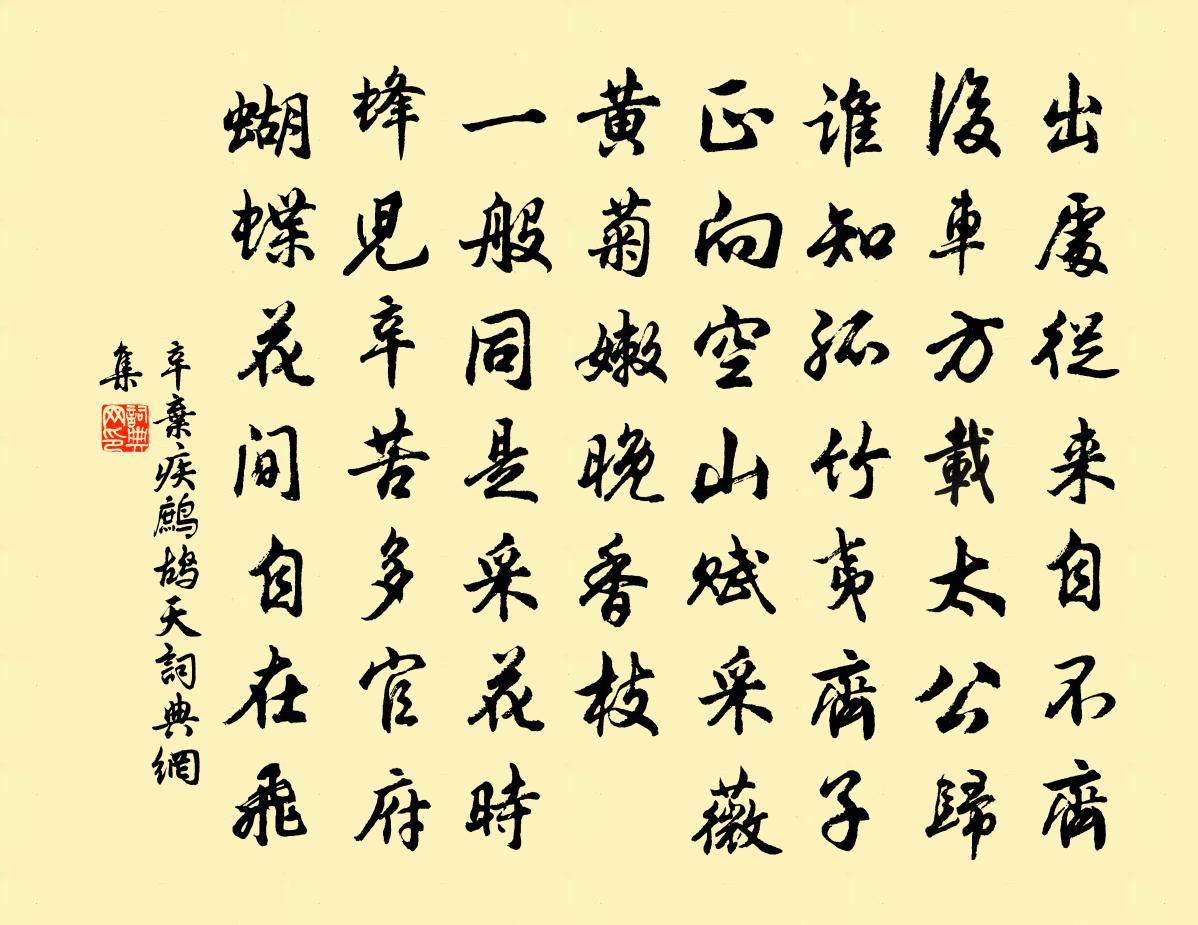 出處從来自不齊
後車方載太公歸
誰知孤竹夷齊子
正向空山賦采薇
黄菊嫩晚香枝
一般同是采花時
蜂児辛苦多官府
蝴蝶花間自在飛
辛棄疾鷓鴣天詞典網
集
詞典网印